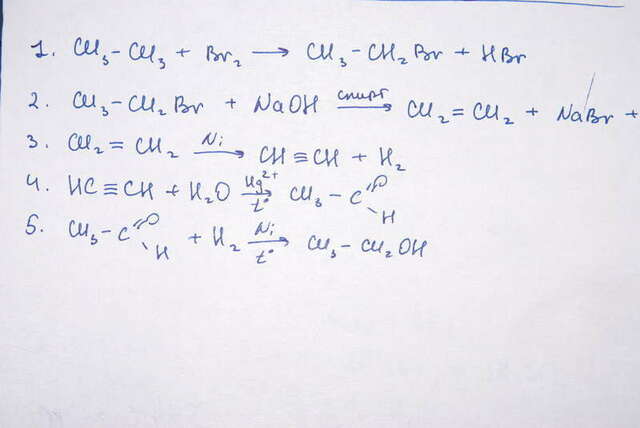 1. CH₃–CH₃ + Br₂ ⟶ CH₃–CH₂Br + HBr
2. CH₃–CH₂Br + NaOH —спирт→ CH₂=CH₂ + NaBr +
3. CH₂=CH₂ —Ni→ CH≡CH + H₂
4. HC≡CH + H₂O —Hg²⁺, t°→ CH₃–C(=O)–H
5. CH₃–C(=O)–H + H₂ —Ni, t°→ CH₃–CH₂OH